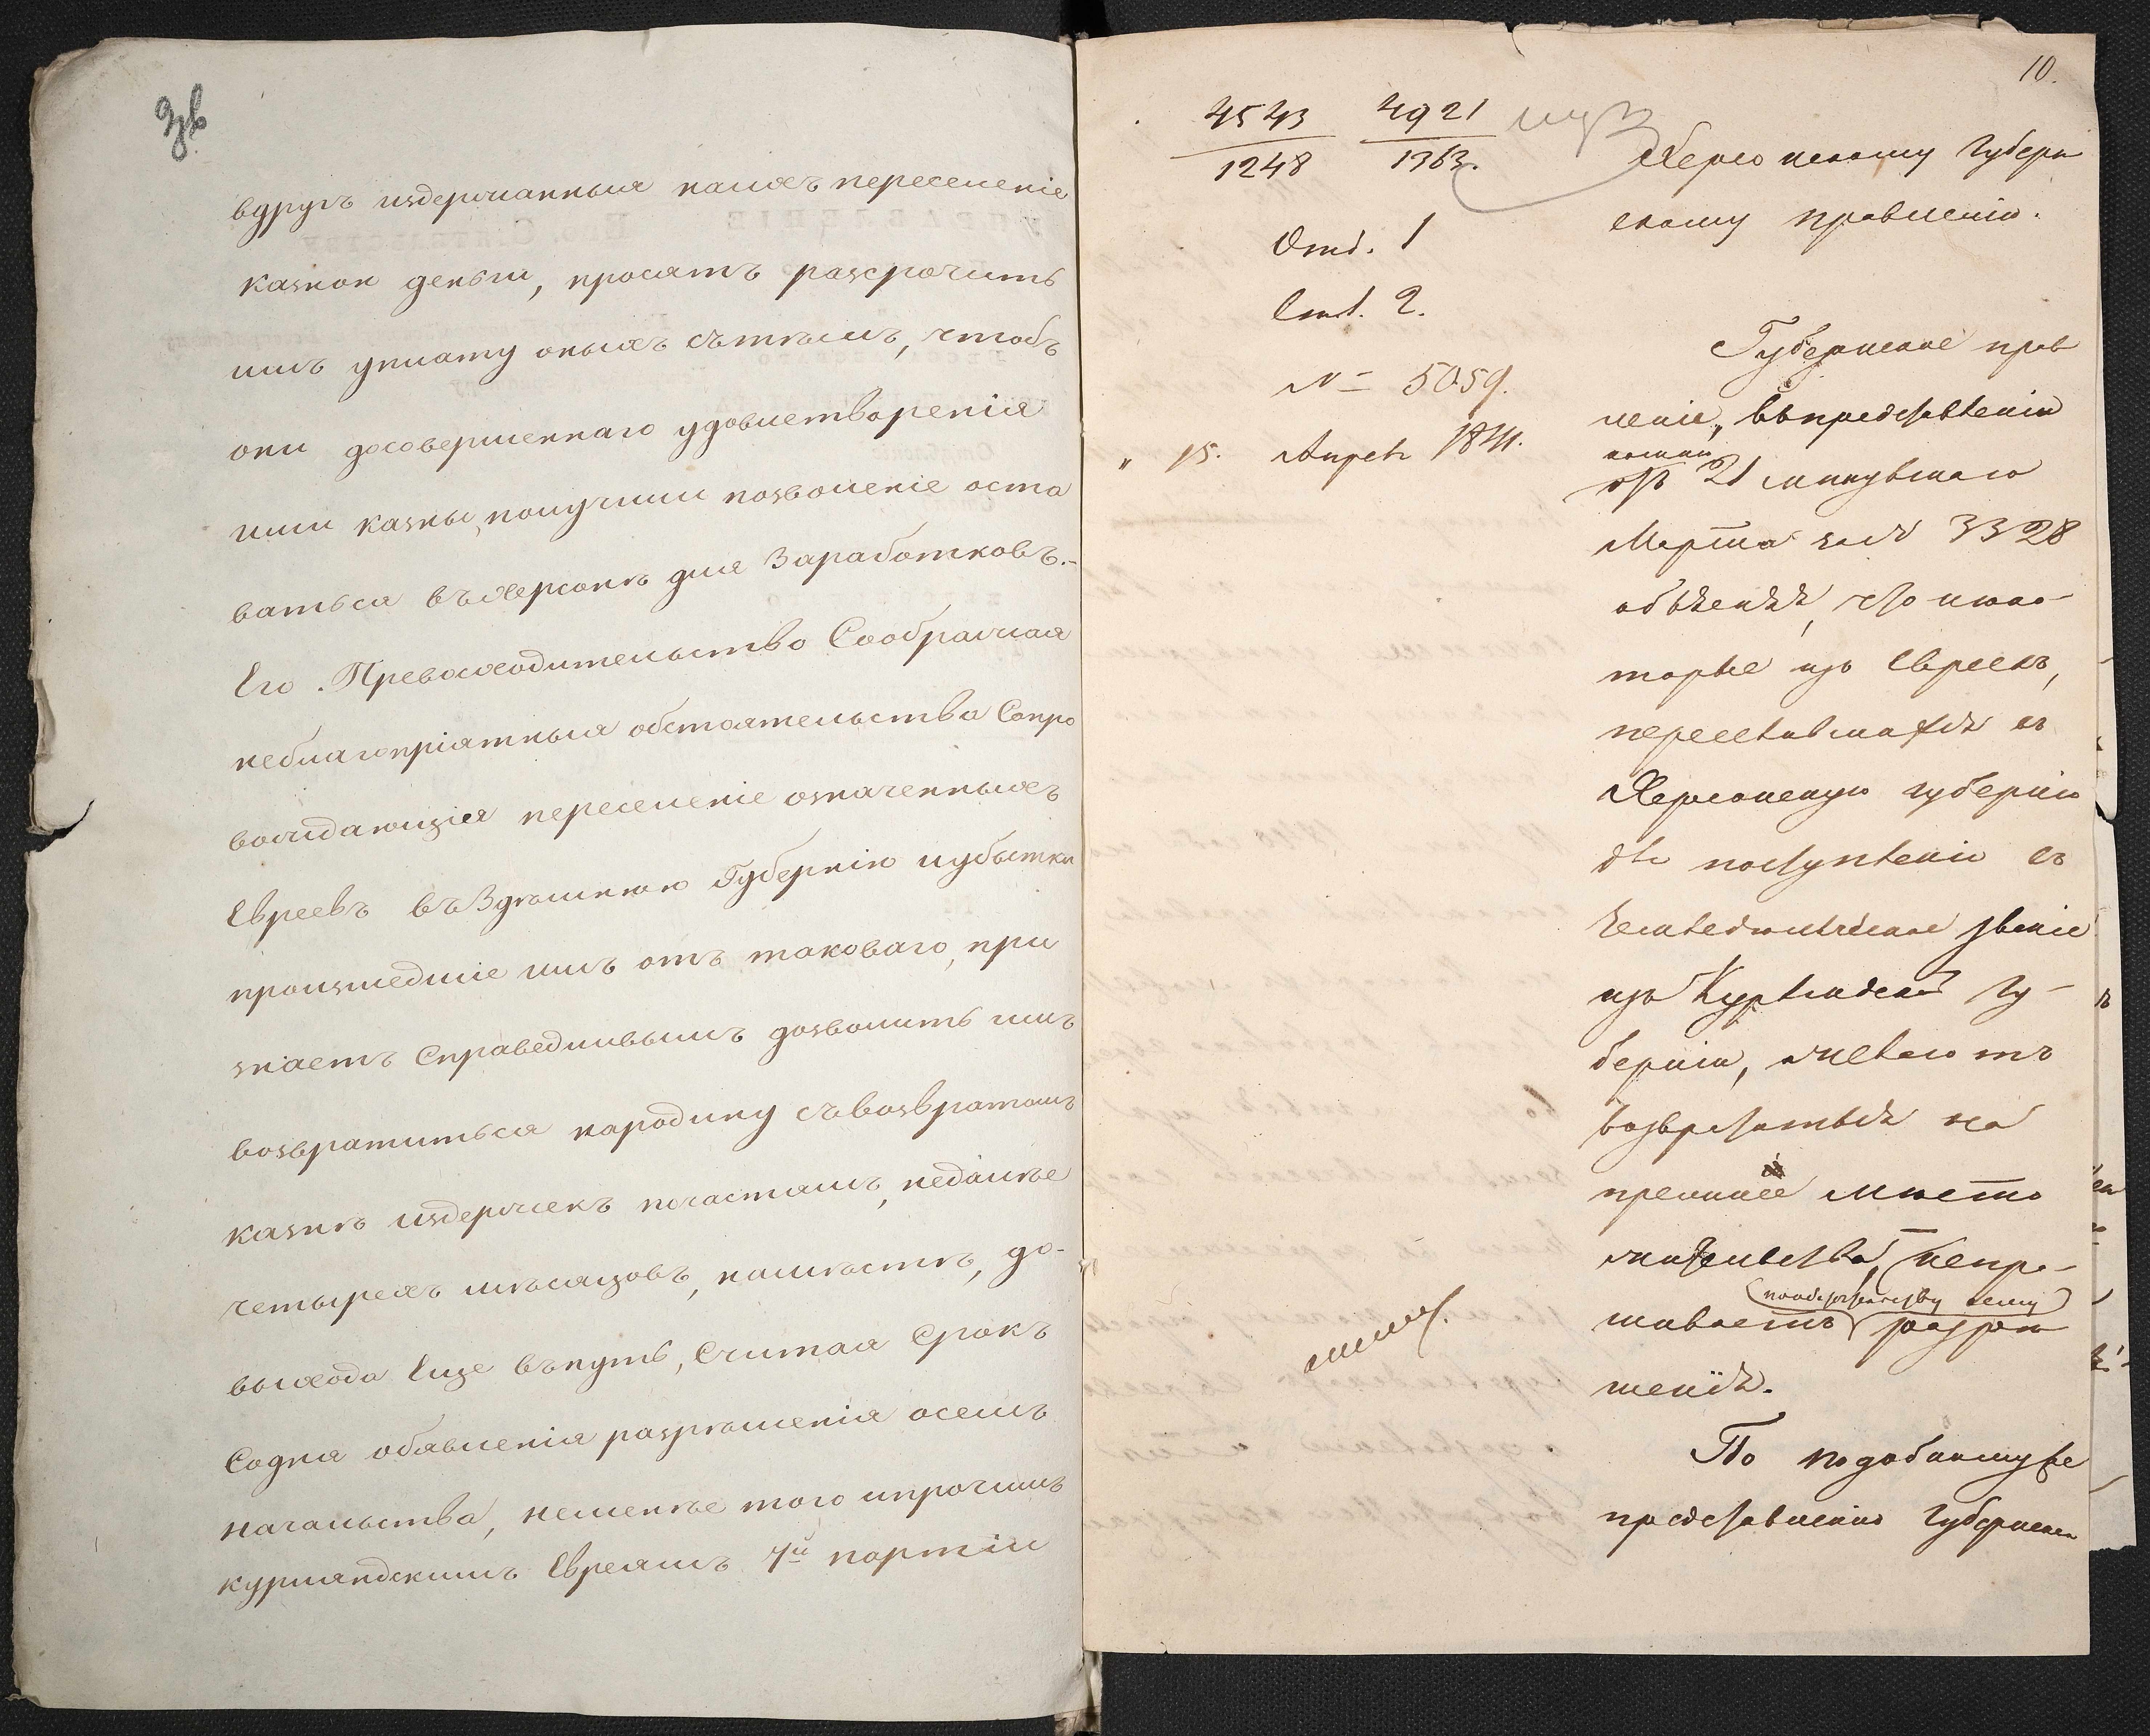 вдругъ издержанныя на ихъ переселеніе
казною деньги, просятъ разсрочить
имъ уплату оныхъ съ тѣмъ, чтобъ
они до совершеннаго удовлетворенія
ими казны, получили позволеніе оста
ваться въ Херсонѣ для Заработковъ.-
Его Превосходительство Соображая
неблагопріятныя обстоятельства Сопро
вождающія переселеніе означенныхъ
Евреевъ въ Здѣшнюю Губернію и убытки
произшедшіе имъ отъ таковаго, при
знаетъ Справедливымъ дозволить имъ
возвратиться на родину съ возвратомъ
казнѣ издержекъ по частямъ, не далѣе
четырехъ мѣсяцовъ, на мѣстѣ, до-
выхода Еще въ путь, Считая Срокъ
Со дня объявленія разрѣшенія о семъ
начальства, не менѣе того и прочимъ
курляндскимъ Евреямъ 4й партіи
10.
4543 4921
1248 1363.
Херсонскому Губерн
скому правленію.
Отд. 1
Ст. 2.
№ 5059.
" 15. Апрѣля 1841.
Губернское прав
леніе, въ представленіи
отъ 21 минувшаго
Марта за № 3328
объясняя, что нѣко-
торые изъ Евреевъ,
переселившихся въ
Херсонскую губернію
для поступленія въ
земледѣльческое званіе
изъ Курляндской гу-
берніи, желаютъ
возвратиться на
прежнее мѣсто
жительства, испра-
по обстоятельству сему
шиваетъ разрѣ
шенія.
По подобному же
представленію Губернск